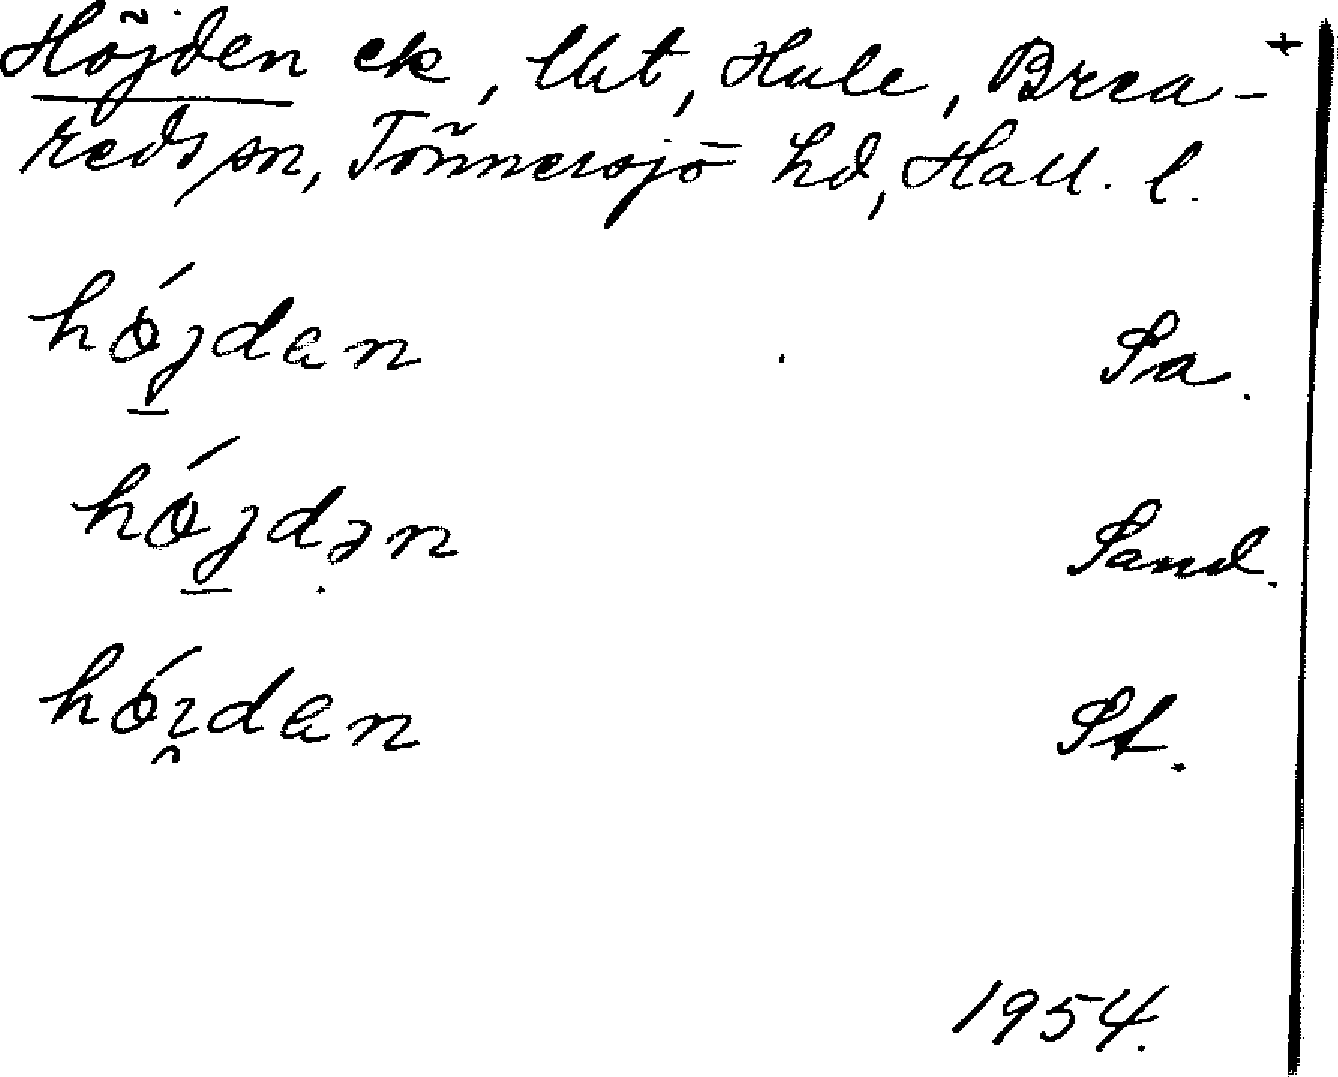 Höjden ek, lllt, Hule, Brea- +
reds sn, Tönnersjö hd, Hall. l.
hǿj̱dan Sa.
hǿj̱dən Sand.
hǿɪ̯dan St.
1954.